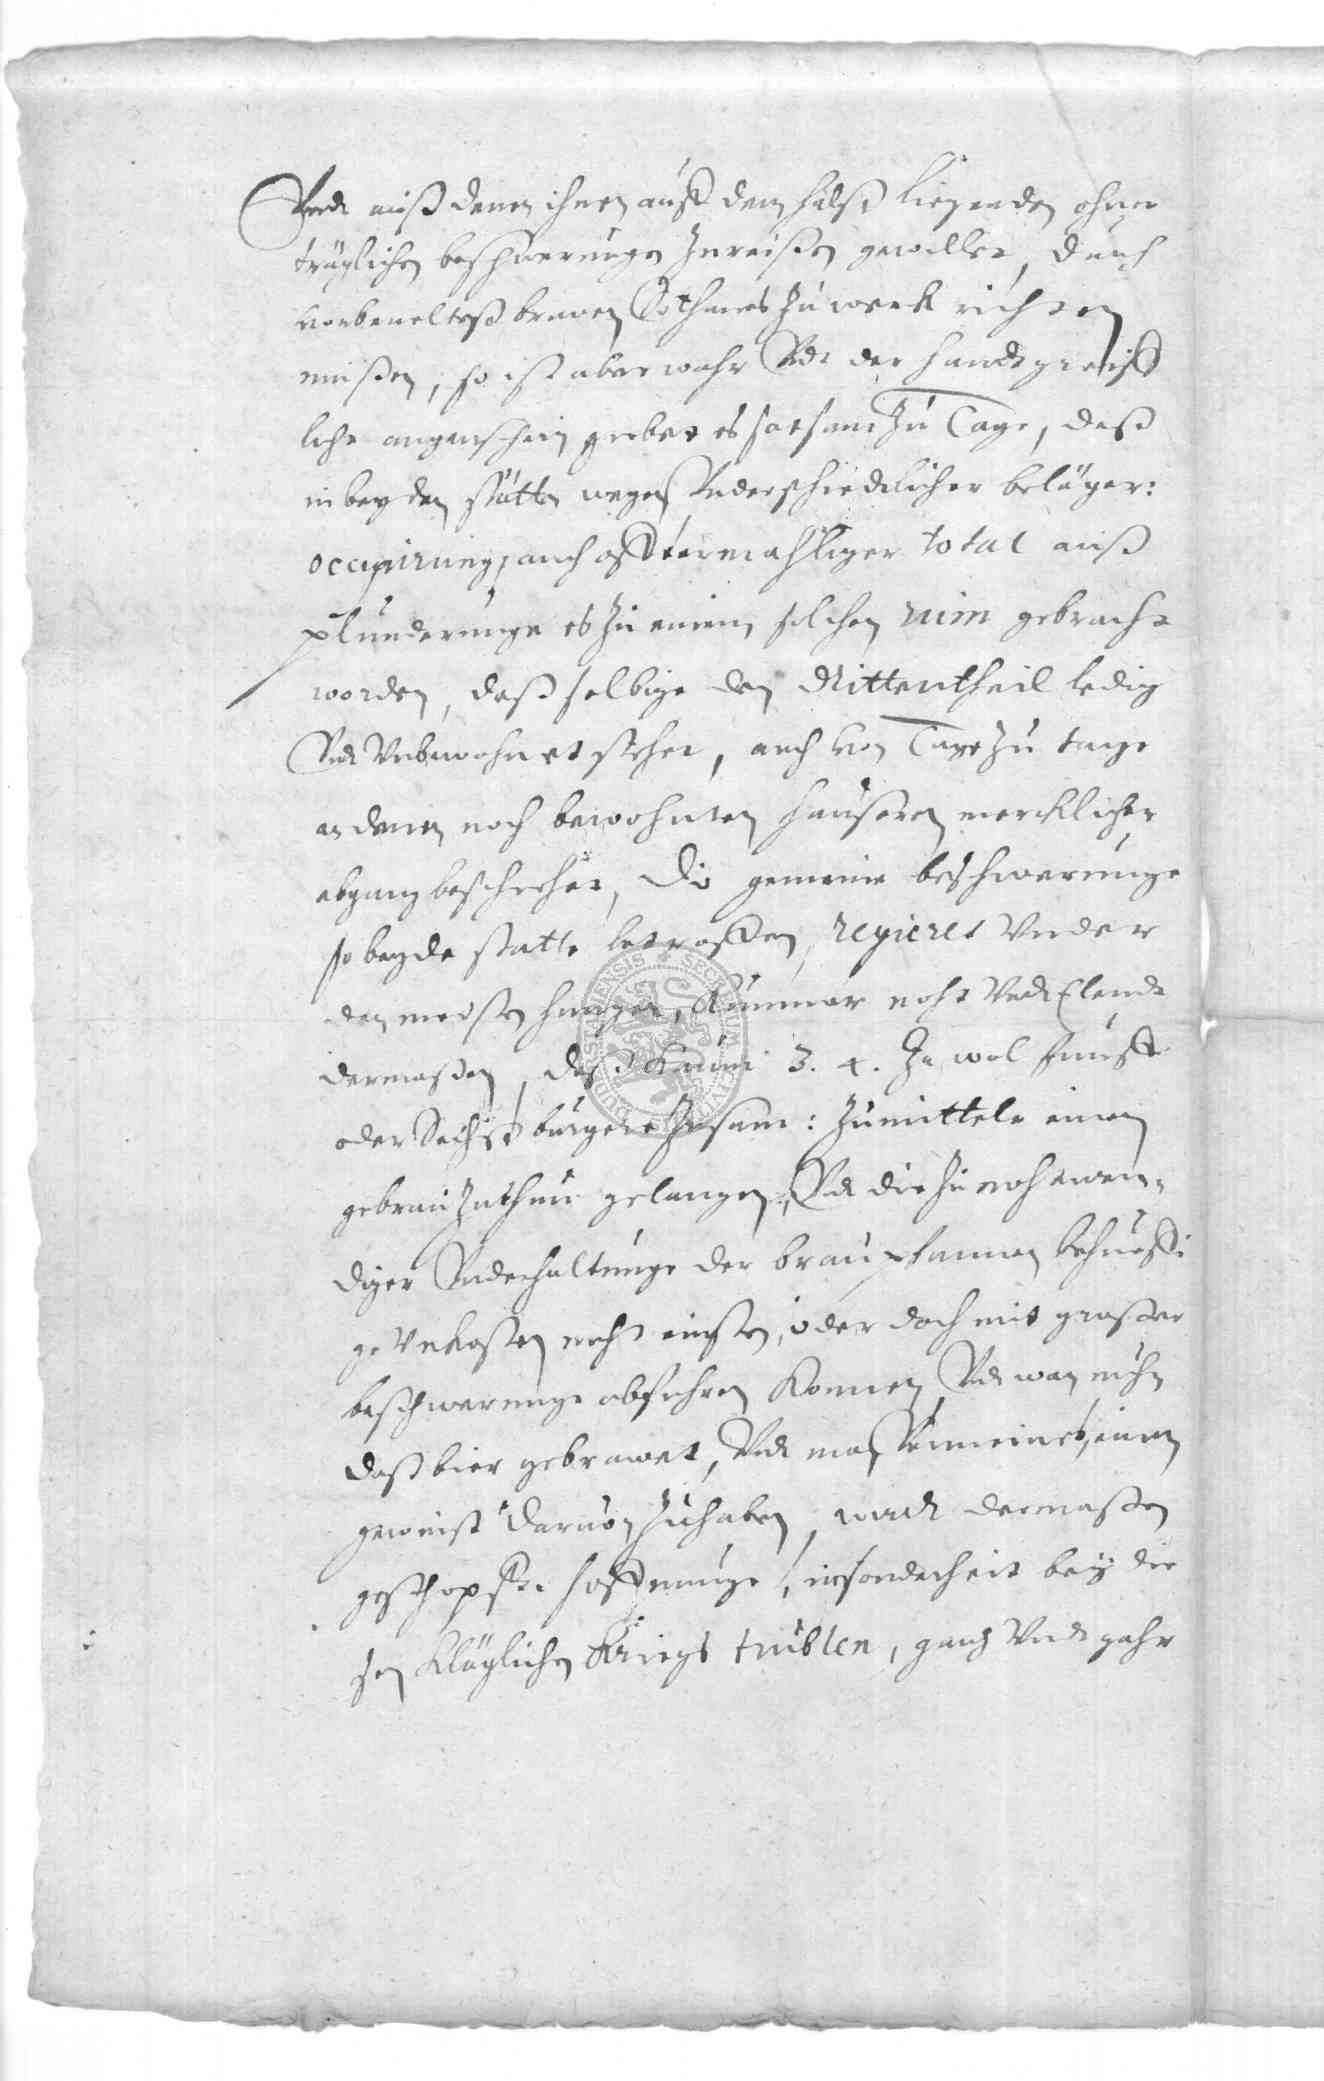 Vnd auß denen ihnen auff dem halß liegenden ohner
träglichen beschwerungen Zureißen gewillet, durch
vorbemeltes brawen Sothanes Zu werck richten
müßen, so ist aber wahr Vnd der handtgreiff
liche augenschein giebet es satsam Zu Tage, daß
in beyden stätten wegen Vnderschiedtlicher beläger:
occupirung, auch offtermahliger total auß
plünderunge es Zu einem solchen ruin gebracht
worden, daß selbige den Mittentheil ledig
Vnd Vnbewohnet stehet, auch von Tage Zu tage
an denen noch bewohnten heuseren mercklicher
abgang beschiehet, die gemeine beschwerunge
so beyde statte betroffen, regieret Vnder
den meisten hunger, Kummer noht Vnd Elendt
dermaßen, daß kaum 3. 4. Ja wol funff
oder Sechß burgere Zusam: Zumitteln einen
gebrau Zuthun gelangen, Vnd die Zu nohtwen-
diger Vnderhaltunge der braupfannen behueffi
ge Vnkosten nicht einsten, oder doch mit großer
beschwerunge abfuhren konnen, Vnd wan nuhn
daß bier gebrawet, Vnd man Vermeinet, einen
gewinst daruon Zuhaben, wird dermaßen
geschopffte hoffnunge, insonderheit bey die
sen kläglichen Kriegs trublen, gantz Vnd gahr